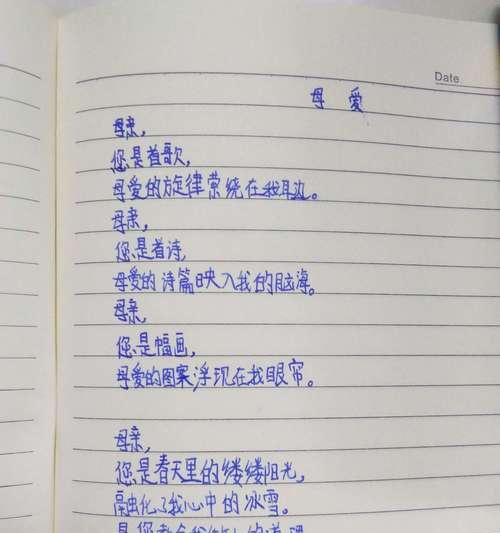 Date
母 爱
母亲，
您是首歌，
母爱的旋律萦绕在我耳边。
母亲，
您是首诗，
母爱的诗篇映入我的脑海。
母亲，
您是幅画，
母爱的图案浮现在我眼帘。
母亲，
您是春天里的缕缕阳光，
融化了我心中的冰雪。
是您教会我做人的道理